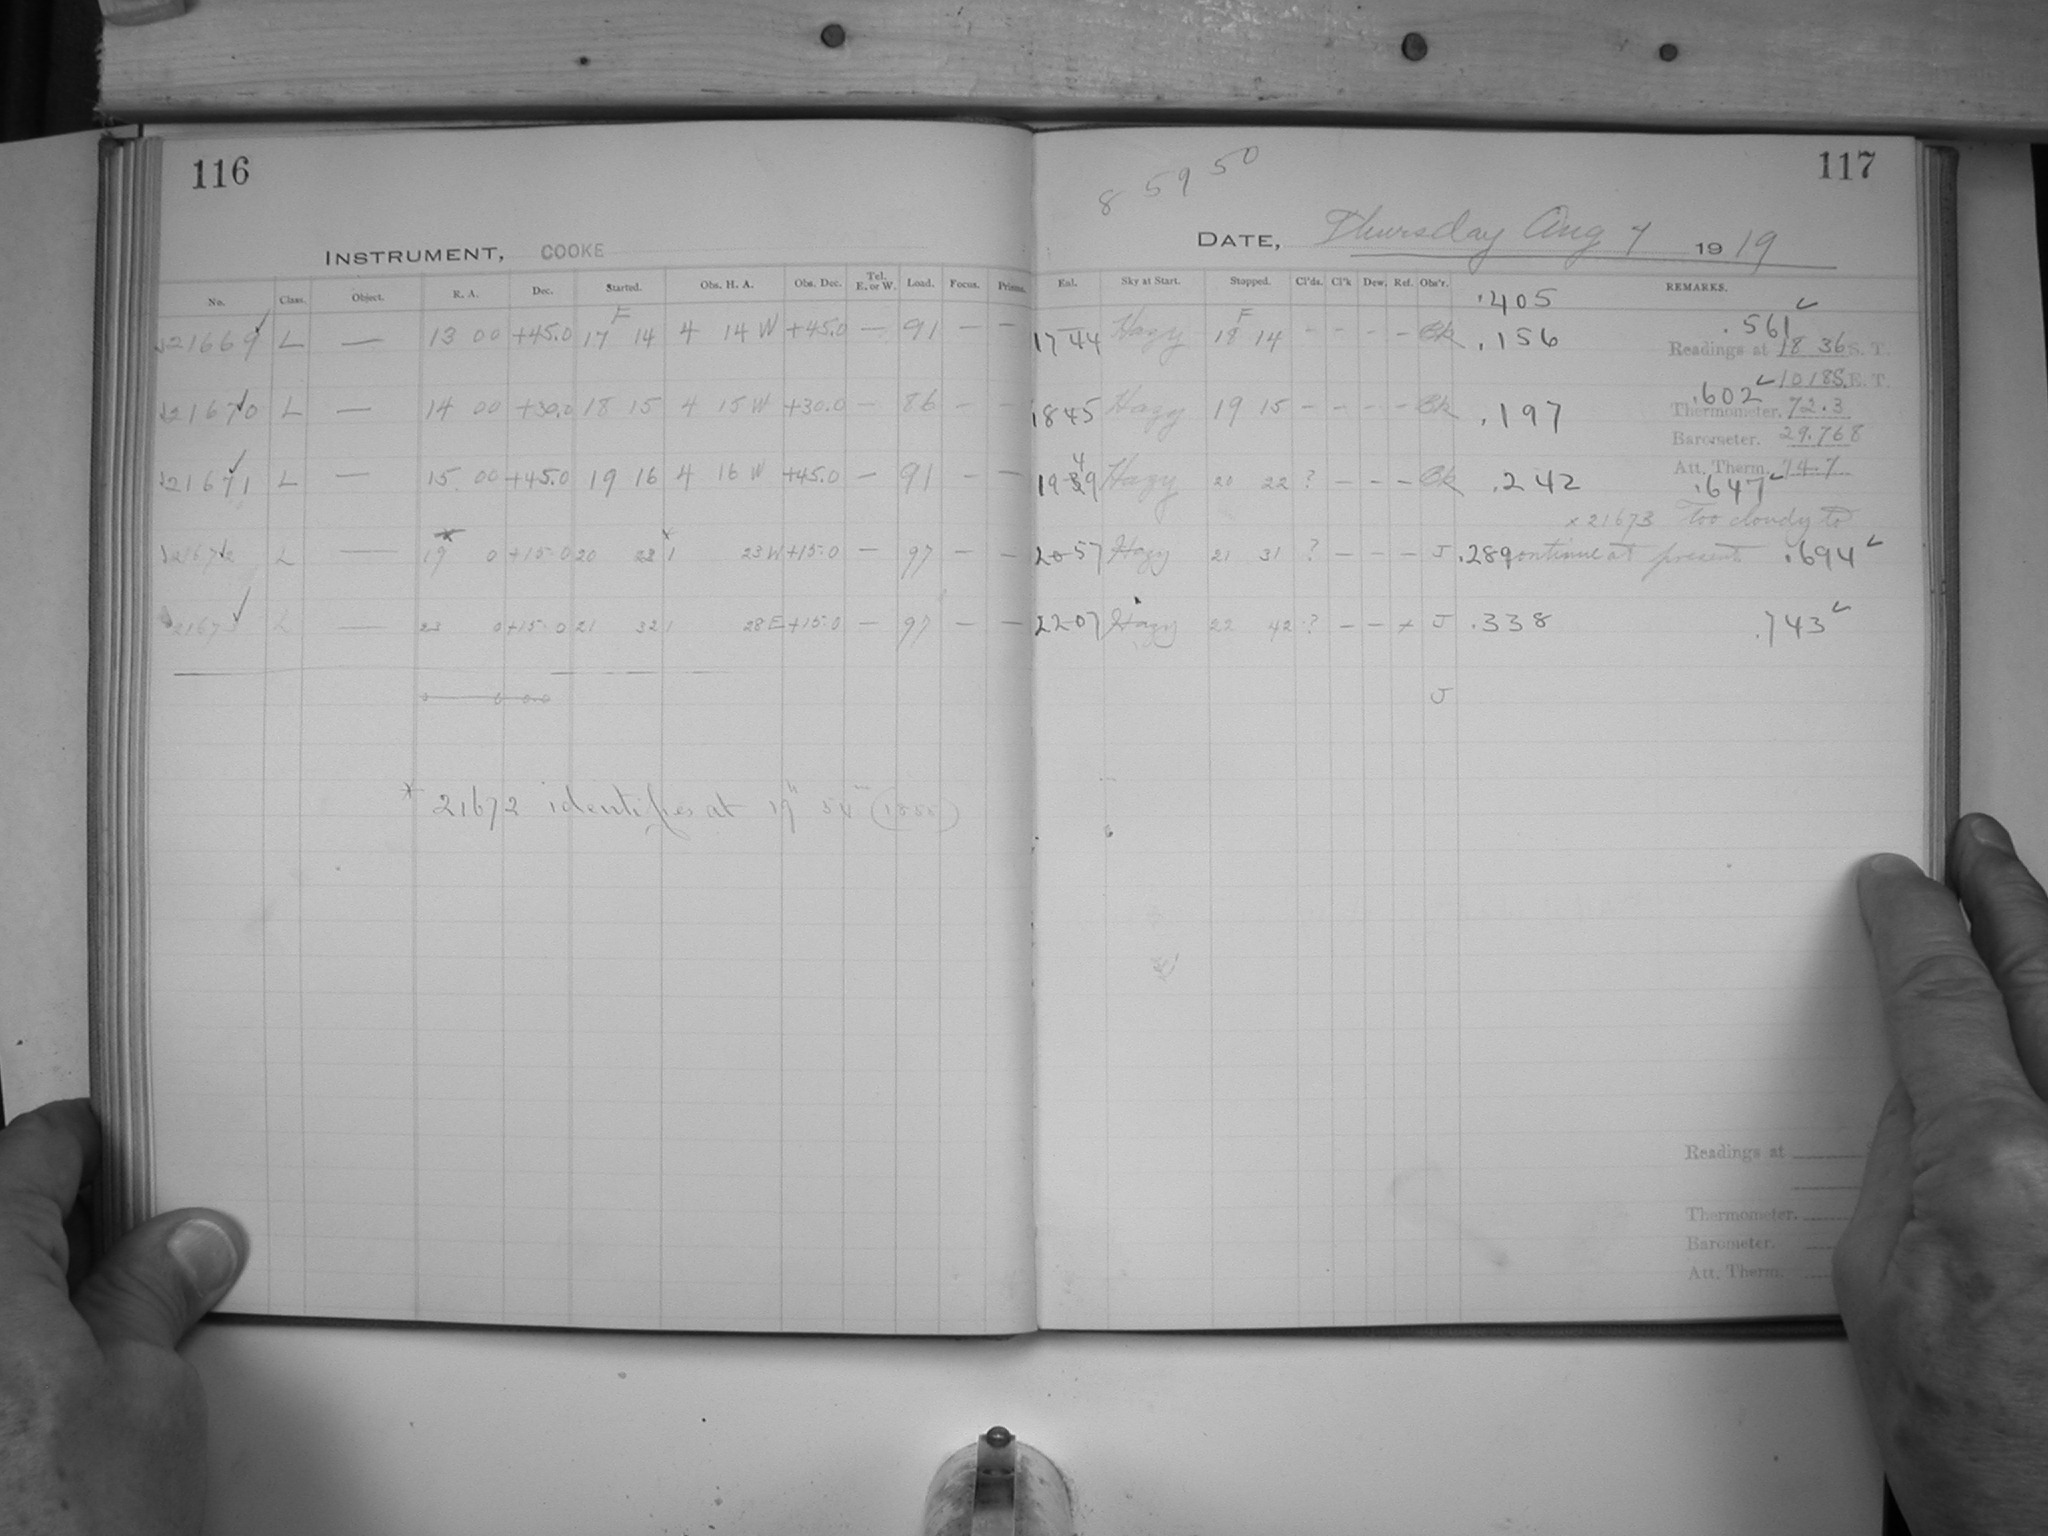 116
INSTRUMENT, COOKE
No. Class. Object. R. A. Dec. Started. Obs. H. A. Obs. Dec. Tel. E. or W. Load. Focus. Prisms.
21669 L — 13 00 +45.0 17 F 14 4 14 W +45.0 — 91 — —
21670 L — 14 00 +30.0 18 15 4 15 W +30.0 — 86 — —
21671 L — 15 00 +45.0 19 16 4 16 W +45.0 — 91 — —
21672 L — 19 0 +15.0 20 23 1 23 W +15.0 — 97 — —
21673 L — 23 0 +15.0 21 32 1 28 E +15.0 — 97 — —
0 0 0.0
* 21672 identifies at 19h
117
8 59 50
DATE, Thursday Aug 7 1919
Eal. Sky at Start. Stopped. Cl'ds. Cl'k Dew. Ref. Obs'r. REMARKS.
.405
1744 Hazy 18 F 14 - - - - Bk .156 .561
Readings at 18 36 S. T.
1018S. E. T.
1845 Hazy 19 15 - - - - Bk .197 .602
Thermometer. 72.3
Barometer. 29.768
Att. Therm. 74.7
19 Hazy 20 22 ? — — — Bk .242 .647
x 21673 Too cloudy to
2057 Hazy 21 31 ? — — — J .289 continue at present .694
2207 Hazy 22 42 ? — — x J .338 .743
J
Readings at
Thermometer.
Barometer.
Att. Therm.